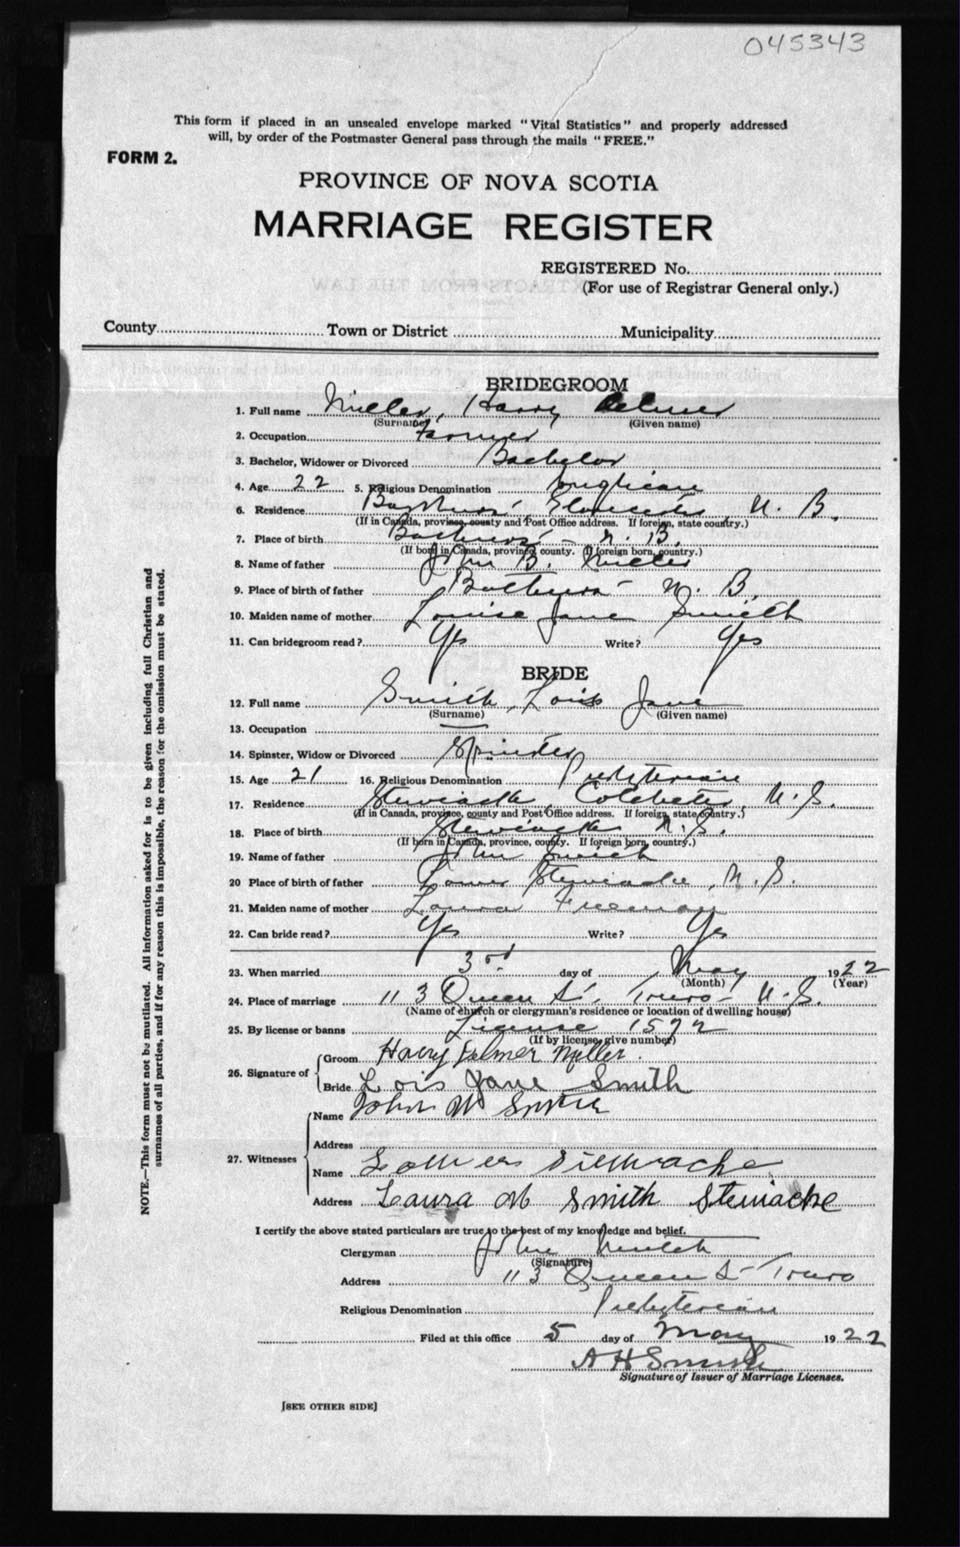 045343
This form if placed in an unsealed envelope marked "Vital Statistics" and properly addressed
will, by order of the Postmaster General pass through the mails "FREE."
FORM 2.
PROVINCE OF NOVA SCOTIA
MARRIAGE REGISTER
REGISTERED No.
(For use of Registrar General only.)
County Town or District Municipality
BRIDEGROOM
1. Full name Miller, Harry Delmer
(Surname) (Given name)
2. Occupation Farmer
3. Bachelor, Widower or Divorced Bachelor
4. Age 22 5. Religious Denomination Anglican
6. Residence Bathurst Gloucester N. B.
(If in Canada, province, county and Post Office address. If foreign, state country.)
7. Place of birth Bathurst - N. B.
(If born in Canada, province, county. If foreign born, country.)
8. Name of father John B. Miller
9. Place of birth of father Bathurst - N. B.
10. Maiden name of mother Louise Jane Smith
11. Can bridegroom read? Yes Write? Yes
BRIDE
12. Full name Smith, Lois Jane
(Surname) (Given name)
13. Occupation —
14. Spinster, Widow or Divorced Spinster
15. Age 21 16. Religious Denomination Presbyterian
17. Residence Stewiacke, Colchester, N. S.
(If in Canada, province, county and Post Office address. If foreign, state country.)
18. Place of birth Stewiacke N. S.
(If born in Canada, province, county. If foreign born, country.)
19. Name of father John Smith
20 Place of birth of father Lower Stewiacke, N. S.
21. Maiden name of mother Laura Freeman
22. Can bride read? Yes Write? Yes
23. When married 3rd day of May 1922
(Month) (Year)
24. Place of marriage 113 Queen St. Truro - N. S.
(Name of church or clergyman's residence or location of dwelling house)
25. By license or banns License 1572
(If by license, give number)
26. Signature of Groom Harry Delmer Miller.
Bride Lois Jane Smith
27. Witnesses Name John W Smith
Address
Name Stewiacke
Address Laura M Smith Stewiacke
I certify the above stated particulars are true to the best of my knowledge and belief.
Clergyman John
(Signature)
Address 113 Queen St - Truro
Religious Denomination Presbyterian
Filed at this office 5 day of May 1922
A H Smith
Signature of Issuer of Marriage Licenses.
[SEE OTHER SIDE]
NOTE.—This form must not be mutilated. All information asked for is to be given including full Christian and
surnames of all parties, and if for any reason this is impossible, the reason for the omission must be stated.